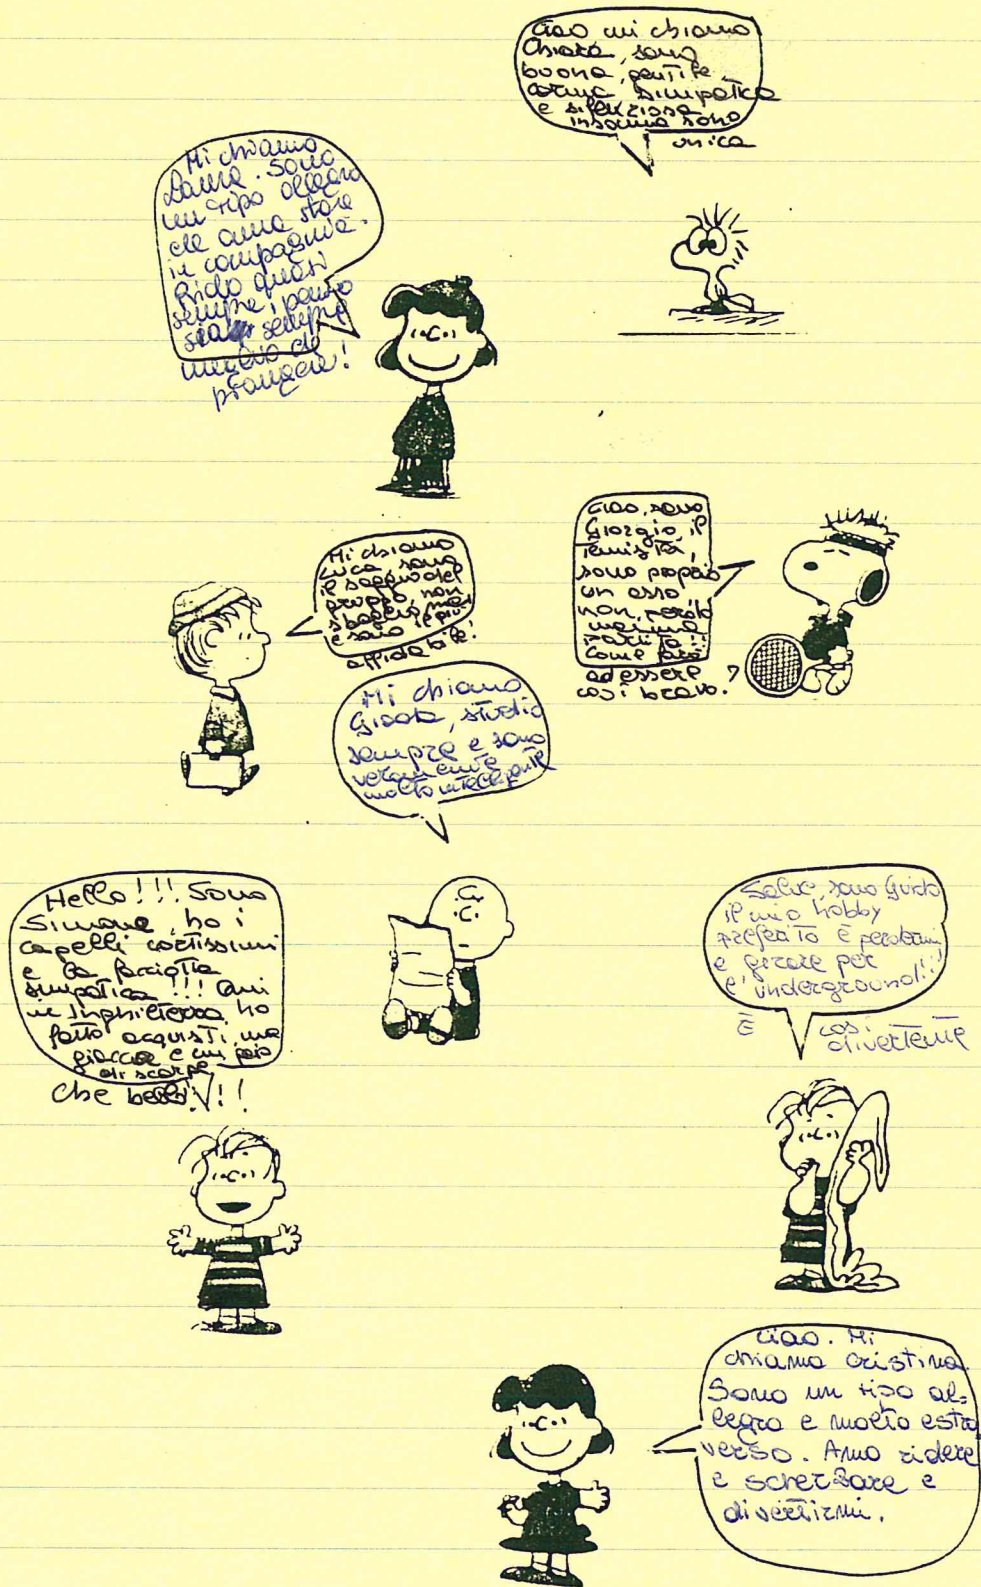 Ciao mi chiamo
Chiara, sono
buona, gentile,
carina, simpatica
e silenziosa
insomma sono
unica
Mi chiamo
Laura. Sono
un tipo allegro
che ama stare
in compagnia.
Rido quasi
sempre, penso
sia sempre
meglio che
piangere!
Ciao, sono
Giorgio, il
tennista,
sono proprio
un asso
non perdo
mai una
partita!!
Come farò
ad essere
così bravo?
Mi chiamo
Luca, sono
il saggio del
gruppo, non
sbaglio mai
e sono il più
affidabile!
Mi chiamo
Giada, studio
sempre e sono
veramente
molto intelligente
Hello!!! Sono
Simone, ho i
capelli cortissimi
e la faccietta
simpatica!!! Qui
in Inghilterra ho
fatto acquisti, una
giacca e un paio
di scarpe
che bello!!!
Salve, sono Guido
il mio hobby
preferito è perdermi
e girare per
l'underground!!!
È così
divertente
Ciao. Mi
chiamo Cristina.
Sono un tipo al=
legro e molto estro
verso. Amo ridere
e scherzare e
divertirmi.